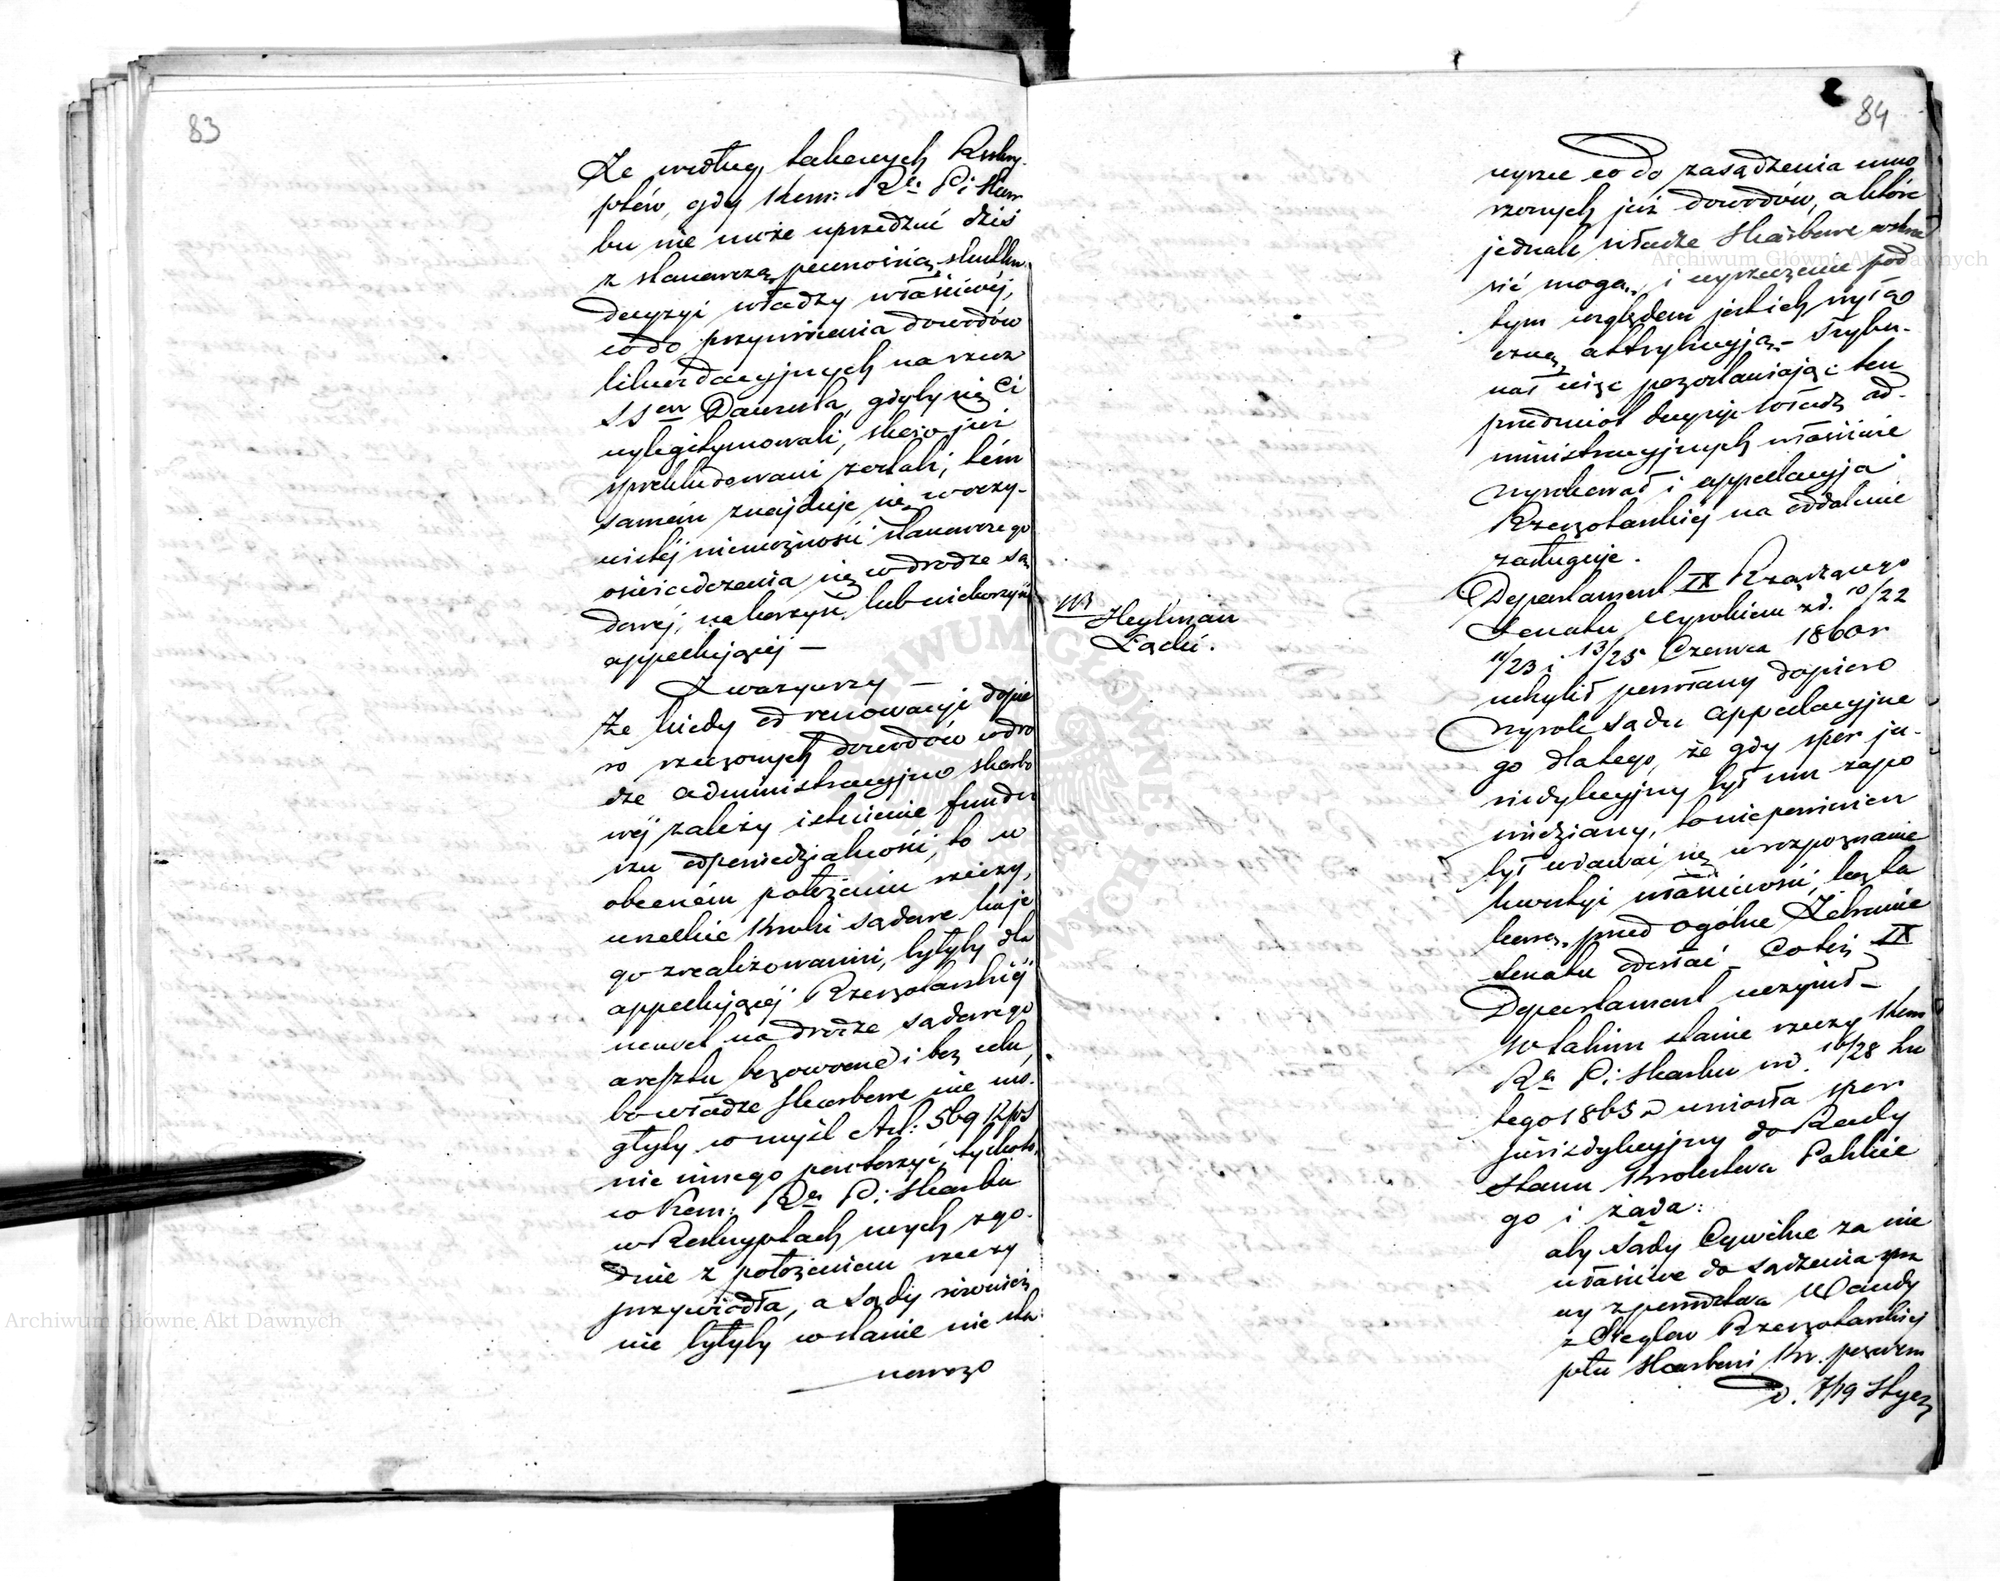 83
Że według takowych Reskry-
ptów, gdy Kom: Rz: P: i Skar
bu nie może uprzedzić dziś
z stanowczą pewnością skutku
decyzyi władzy właściwéj,
co do przywrócenia dowodów
likwidacyjnych na rzecz
SSrów Dawida, gdyby się Ci
wylegitymowali, skoro już
sprekludowani zostali; tém
samém znajduje się w oczy-
wistéj niemożności stanowczego
oświadczenia się w drodze są
dowéj, na korzyść lub niekorzyść
appellującéj —
Zważywszy —
Że kiedy od renowacyi dopie
ro rzeczonych dowodów w dro
dze administracyjno skarbo
wéj zależy istnienie fundu
szu odpowiedzialności, to w
obecném położeniu rzeczy,
wszelkie kroki sądowe ku je
go zrealizowaniu, byłyby dla
appellującéj Rzeszotarskiéj
nawet na drodze sądowego
aresztu bezowocne i bez celu,
bo władze skarbowe nie mo-
głyby w myśl Art: 569 Kps
nic innego powtórzyć, tylko to,
co Kom: Rz: P: i Skarbu
w Reskryptach swych zgo-
dnie z położeniem rzeczy
przywiodła, a Sądy również
nie byłyby w stanie nic sta-
nowczo
84
wyrzec co do zasądzenia umo
rzonych już dowodów, a które
jednak władze Skarbowe wskrze
sić mogą, i wyrzeczenie pod
tym względem jest ich wyłą
czną attrybucyją — Trybu-
nał więc pozostawiając ten
przedmiot decyzyi Władz ad-
ministracyjnych właściwie
wyrokował i appellacyja
Rzeszotarskiéj na oddalenie
zasługuje.
113
Heylman
Łącki.
Departament IX Rządzącego
Senatu, Wyrokiem z d. 10/22
11/23 i 13/25 Czerwca 1860 r
uchylił powołany dopiero
Wyrok Sądu Appellacyjne
go dlatego, że gdy spór ju-
risdykcyjny był mu zapo
wiedziany, to nie powinien
był wdawać się w rozpoznanie
kwestyi właściwości, lecz ta
kową przed Ogólne Zebranie
Senatu odesłać — Co też IX
Departament uczynił —
W takim stanie rzeczy Kom
Rz P: i Skarbu w d. 16/28 Lu
tego 1865 r wniosła spór
jurisdykcyjny do Rady
Stanu Królestwa Polskie
go i żąda:
aby Sądy Cywilne za nie
właściwe do sądzenia spra
wy z powództwa Wandy
z Cieglów Rzeszotarskiéj
ptu Skarbowi Kr. pozwem
d. 7/19 Stycz